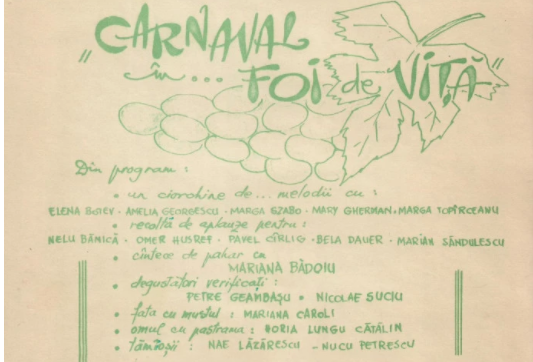 „CARNAVAL
în... FOI de VIȚĂ"
Din program:
• un ciorchine de... melodii cu:
ELENA BOTEV • AMELIA GEORGESCU • MARGA SZABO • MARY GHERMAN • MARGA TOPÎRCEANU
• recoltă de aplauze pentru:
NELU BĂNICĂ • OMER HUSREF • PAVEL CÎRLIG • BELA DAUER • MARIAN SĂNDULESCU
• cîntece de pahar cu
MARIANA BĂDOIU
• degustători verificați:
PETRE GEAMBAȘU • NICOLAE SUCIU
• fata cu mustul: MARIANA CAROLI
• omul cu pastrama: HORIA LUNGU CĂTĂLIN
• tămîioșii: NAE LĂZĂRESCU - NUCU PETRESCU